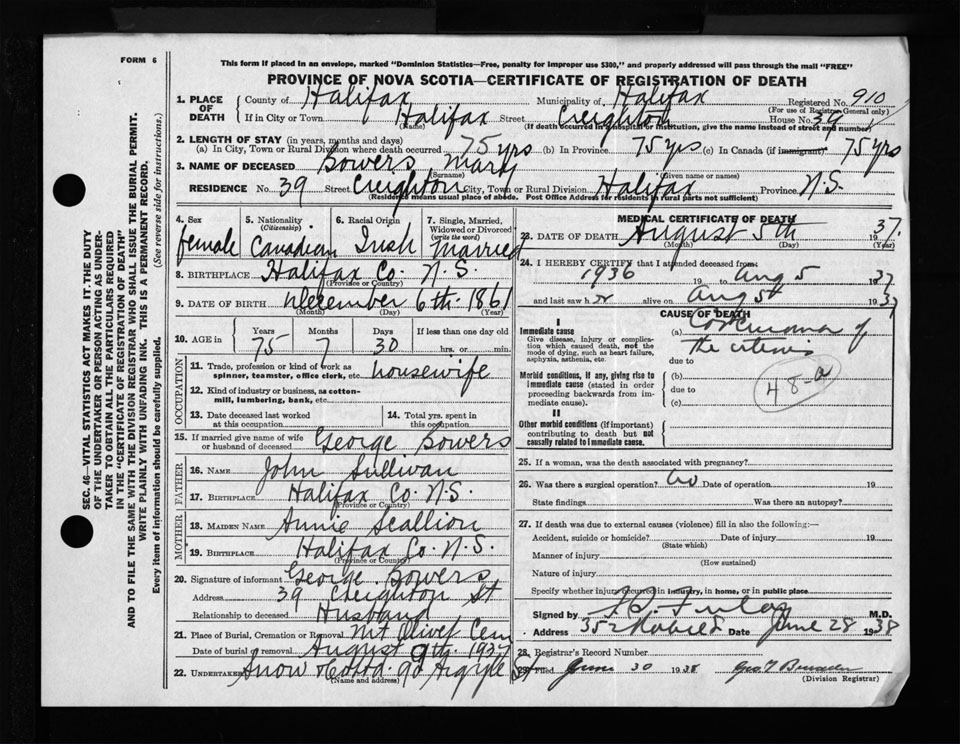 FORM 6
This form if placed in an envelope, marked "Dominion Statistics—Free, penalty for improper use $300," and properly addressed will pass through the mail "FREE"
PROVINCE OF NOVA SCOTIA—CERTIFICATE OF REGISTRATION OF DEATH
SEC. 46—VITAL STATISTICS ACT MAKES IT THE DUTY
OF THE UNDERTAKER OR PERSON ACTING AS UNDER-
TAKER TO OBTAIN ALL THE PARTICULARS REQUIRED
IN THE "CERTIFICATE OF REGISTRATION OF DEATH"
AND TO FILE THE SAME WITH THE DIVISION REGISTRAR WHO SHALL ISSUE THE BURIAL PERMIT.
WRITE PLAINLY WITH UNFADING INK. THIS IS A PERMANENT RECORD.
Every item of information should be carefully supplied. (See reverse side for instructions.)
1. PLACE OF DEATH County of Halifax Municipality of Halifax Registered No. 910
(For use of Registrar General only)
If in City or Town Halifax Street Creighton House No. 39
(Name) (If death occurred in hospital or institution, give the name instead of street and number)
2. LENGTH OF STAY (in years, months and days)
(a) In City, Town or Rural Division where death occurred 75 yrs (b) In Province 75 yrs (c) In Canada (if immigrant) 75 yrs
3. NAME OF DECEASED Bowers Mary
(Surname) (Given name or names)
RESIDENCE No. 39 Street Creighton City, Town or Rural Division Halifax Province N.S.
(Residence means usual place of abode. Post Office Address for residents in rural parts not sufficient)
4. Sex female
5. Nationality (Citizenship) Canadian
6. Racial Origin Irish
7. Single, Married, Widowed or Divorced (write the word) Married
8. BIRTHPLACE Halifax Co. N.S.
(Province or Country)
9. DATE OF BIRTH December 6th 1861
(Month) (Day) (Year)
10. AGE in Years 75 Months 7 Days 30 If less than one day old hrs. or min.
OCCUPATION
11. Trade, profession or kind of work as spinner, teamster, office clerk, etc. housewife
12. Kind of industry or business, as cotton-mill, lumbering, bank, etc.
13. Date deceased last worked at this occupation
14. Total yrs. spent in this occupation
15. If married give name of wife or husband of deceased George Bowers
FATHER
16. NAME John Sullivan
17. BIRTHPLACE Halifax Co. N.S.
(Province or Country)
MOTHER
18. MAIDEN NAME Annie Scallion
19. BIRTHPLACE Halifax Co. N.S.
(Province or Country)
20. Signature of informant George Bowers
Address 39 Creighton St
Relationship to deceased Husband
21. Place of Burial, Cremation or Removal Mt Olivet Cem
Date of burial or removal August 9th 1937
22. UNDERTAKER Snow 90 Argyle St
(Name and address)
MEDICAL CERTIFICATE OF DEATH
23. DATE OF DEATH August 5th 1937.
(Month) (Day) (Year)
24. I HEREBY CERTIFY that I attended deceased from:
1936 19 to Aug 5 1937
and last saw h er alive on Aug 5th 1937
CAUSE OF DEATH
I
Immediate cause
Give disease, injury or complication which caused death, not the mode of dying, such as heart failure, asphyxia, asthenia, etc.
(a) Carcinoma of
the uterus
due to
Morbid conditions, if any, giving rise to immediate cause (stated in order proceeding backwards from immediate cause).
(b)
due to
(c)
48-a
II
Other morbid conditions (if important) contributing to death but not causally related to immediate cause.
25. If a woman, was the death associated with pregnancy?
26. Was there a surgical operation? No Date of operation 19
State findings Was there an autopsy?
27. If death was due to external causes (violence) fill in also the following:—
Accident, suicide or homicide? Date of injury 19
(State which)
Manner of injury
(How sustained)
Nature of injury
Specify whether injury occurred in industry, in home, or in public place
Signed by M.D.
Address 352 Robie St Date June 28 1938
28. Registrar's Record Number
29. Filed June 30 1938
(Division Registrar)